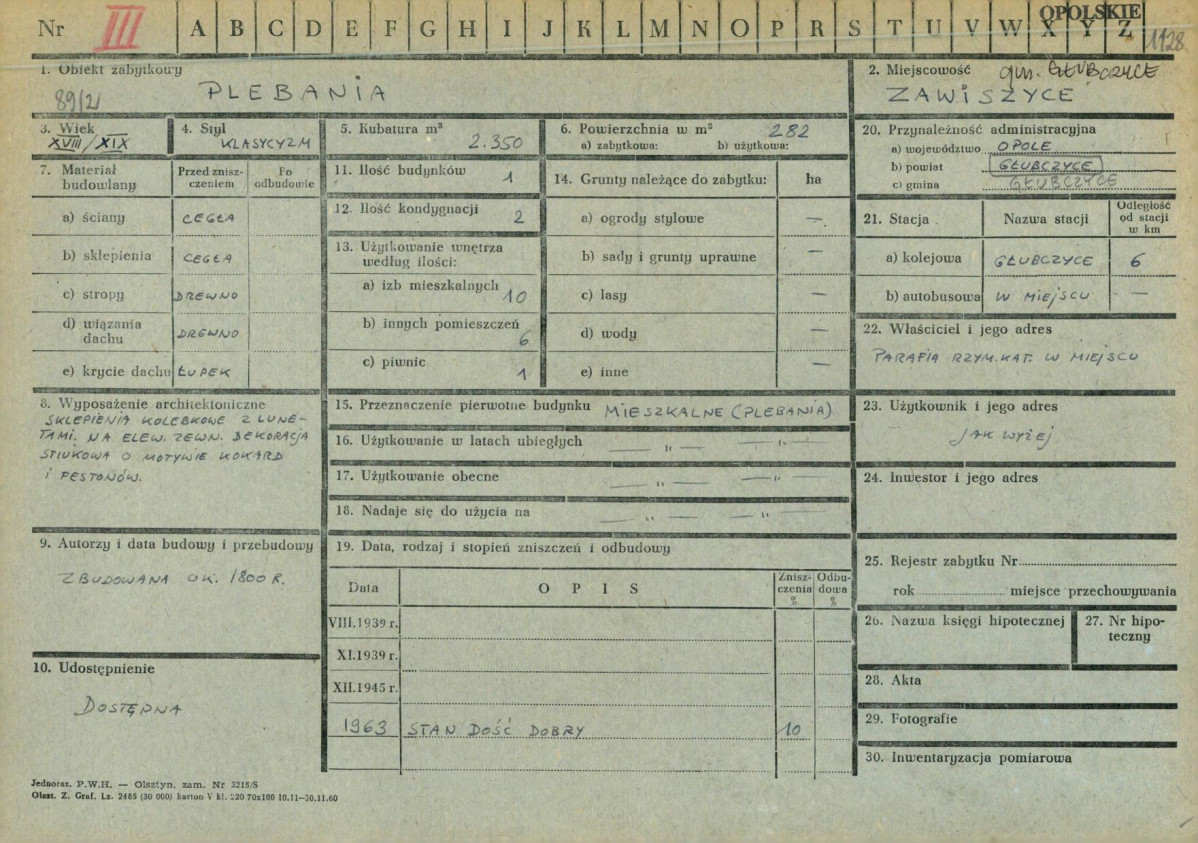 OPOLSKIE
Nr III A B C D E F G H I J K L M N O P R S T U V W X Y Z 1128
1. Obiekt zabytkowy
89/2 PLEBANIA
2. Miejscowość gm. GŁUBCZYCE
ZAWISZYCE
3. Wiek
XVIII/XIX
4. Styl
KLASYCYZM
5. Kubatura m³
2.350
6. Powierzchnia w m² 282
a) zabytkowa: b) użytkowa:
7. Materiał budowlany
Przed zniszczeniem
Po odbudowie
a) ściany CEGŁA
b) sklepienia CEGŁA
c) stropy DREWNO
d) wiązania dachu DREWNO
e) krycie dachu ŁUPEK
8. Wyposażenie architektoniczne
SKLEPIENIA KOLEBKOWE Z LUNE-
TAMI. NA ELEW. ZEWN. DEKORACJA
STIUKOWA O MOTYWIE KOKARD
I FESTONÓW.
9. Autorzy i data budowy i przebudowy
ZBUDOWANA OK. 1800 R.
10. Udostępnienie
DOSTĘPNA
11. Ilość budynków 1
12. Ilość kondygnacji 2
13. Użytkowanie wnętrza
według ilości:
a) izb mieszkalnych 10
b) innych pomieszczeń 6
c) piwnic 1
14. Grunty należące do zabytku: ha
a) ogrody stylowe —
b) sady i grunty uprawne —
c) lasy —
d) wody —
e) inne —
15. Przeznaczenie pierwotne budynku MIESZKALNE (PLEBANIA)
16. Użytkowanie w latach ubiegłych — „ — — „ —
17. Użytkowanie obecne — „ — — „ —
18. Nadaje się do użycia na — „ — — „ —
19. Data, rodzaj i stopień zniszczeń i odbudowy
Data OPIS Zniszczenia % Odbudowa %
VIII.1939 r.
XI.1939 r.
XII.1945 r.
1963 STAN DOŚĆ DOBRY 10
20. Przynależność administracyjna
a) województwo OPOLE
b) powiat GŁUBCZYCE
c) gmina GŁUBCZYCE
21. Stacja Nazwa stacji Odległość od stacji w km
a) kolejowa GŁUBCZYCE 6
b) autobusowa W MIEJSCU —
22. Właściciel i jego adres
PARAFIA RZYM.KAT. W MIEJSCU
23. Użytkownik i jego adres
JAK WYŻEJ
24. Inwestor i jego adres
25. Rejestr zabytku Nr
rok miejsce przechowywania
26. Nazwa księgi hipotecznej
27. Nr hipo-
teczny
28. Akta
29. Fotografie
30. Inwentaryzacja pomiarowa
Jednoraz. P.W.H. — Olsztyn, zam. Nr 3215/S
Olszt. Z. Graf. Lz. 2485 (30 000) karton V kl. 220 70x100 10.11—30.11.60